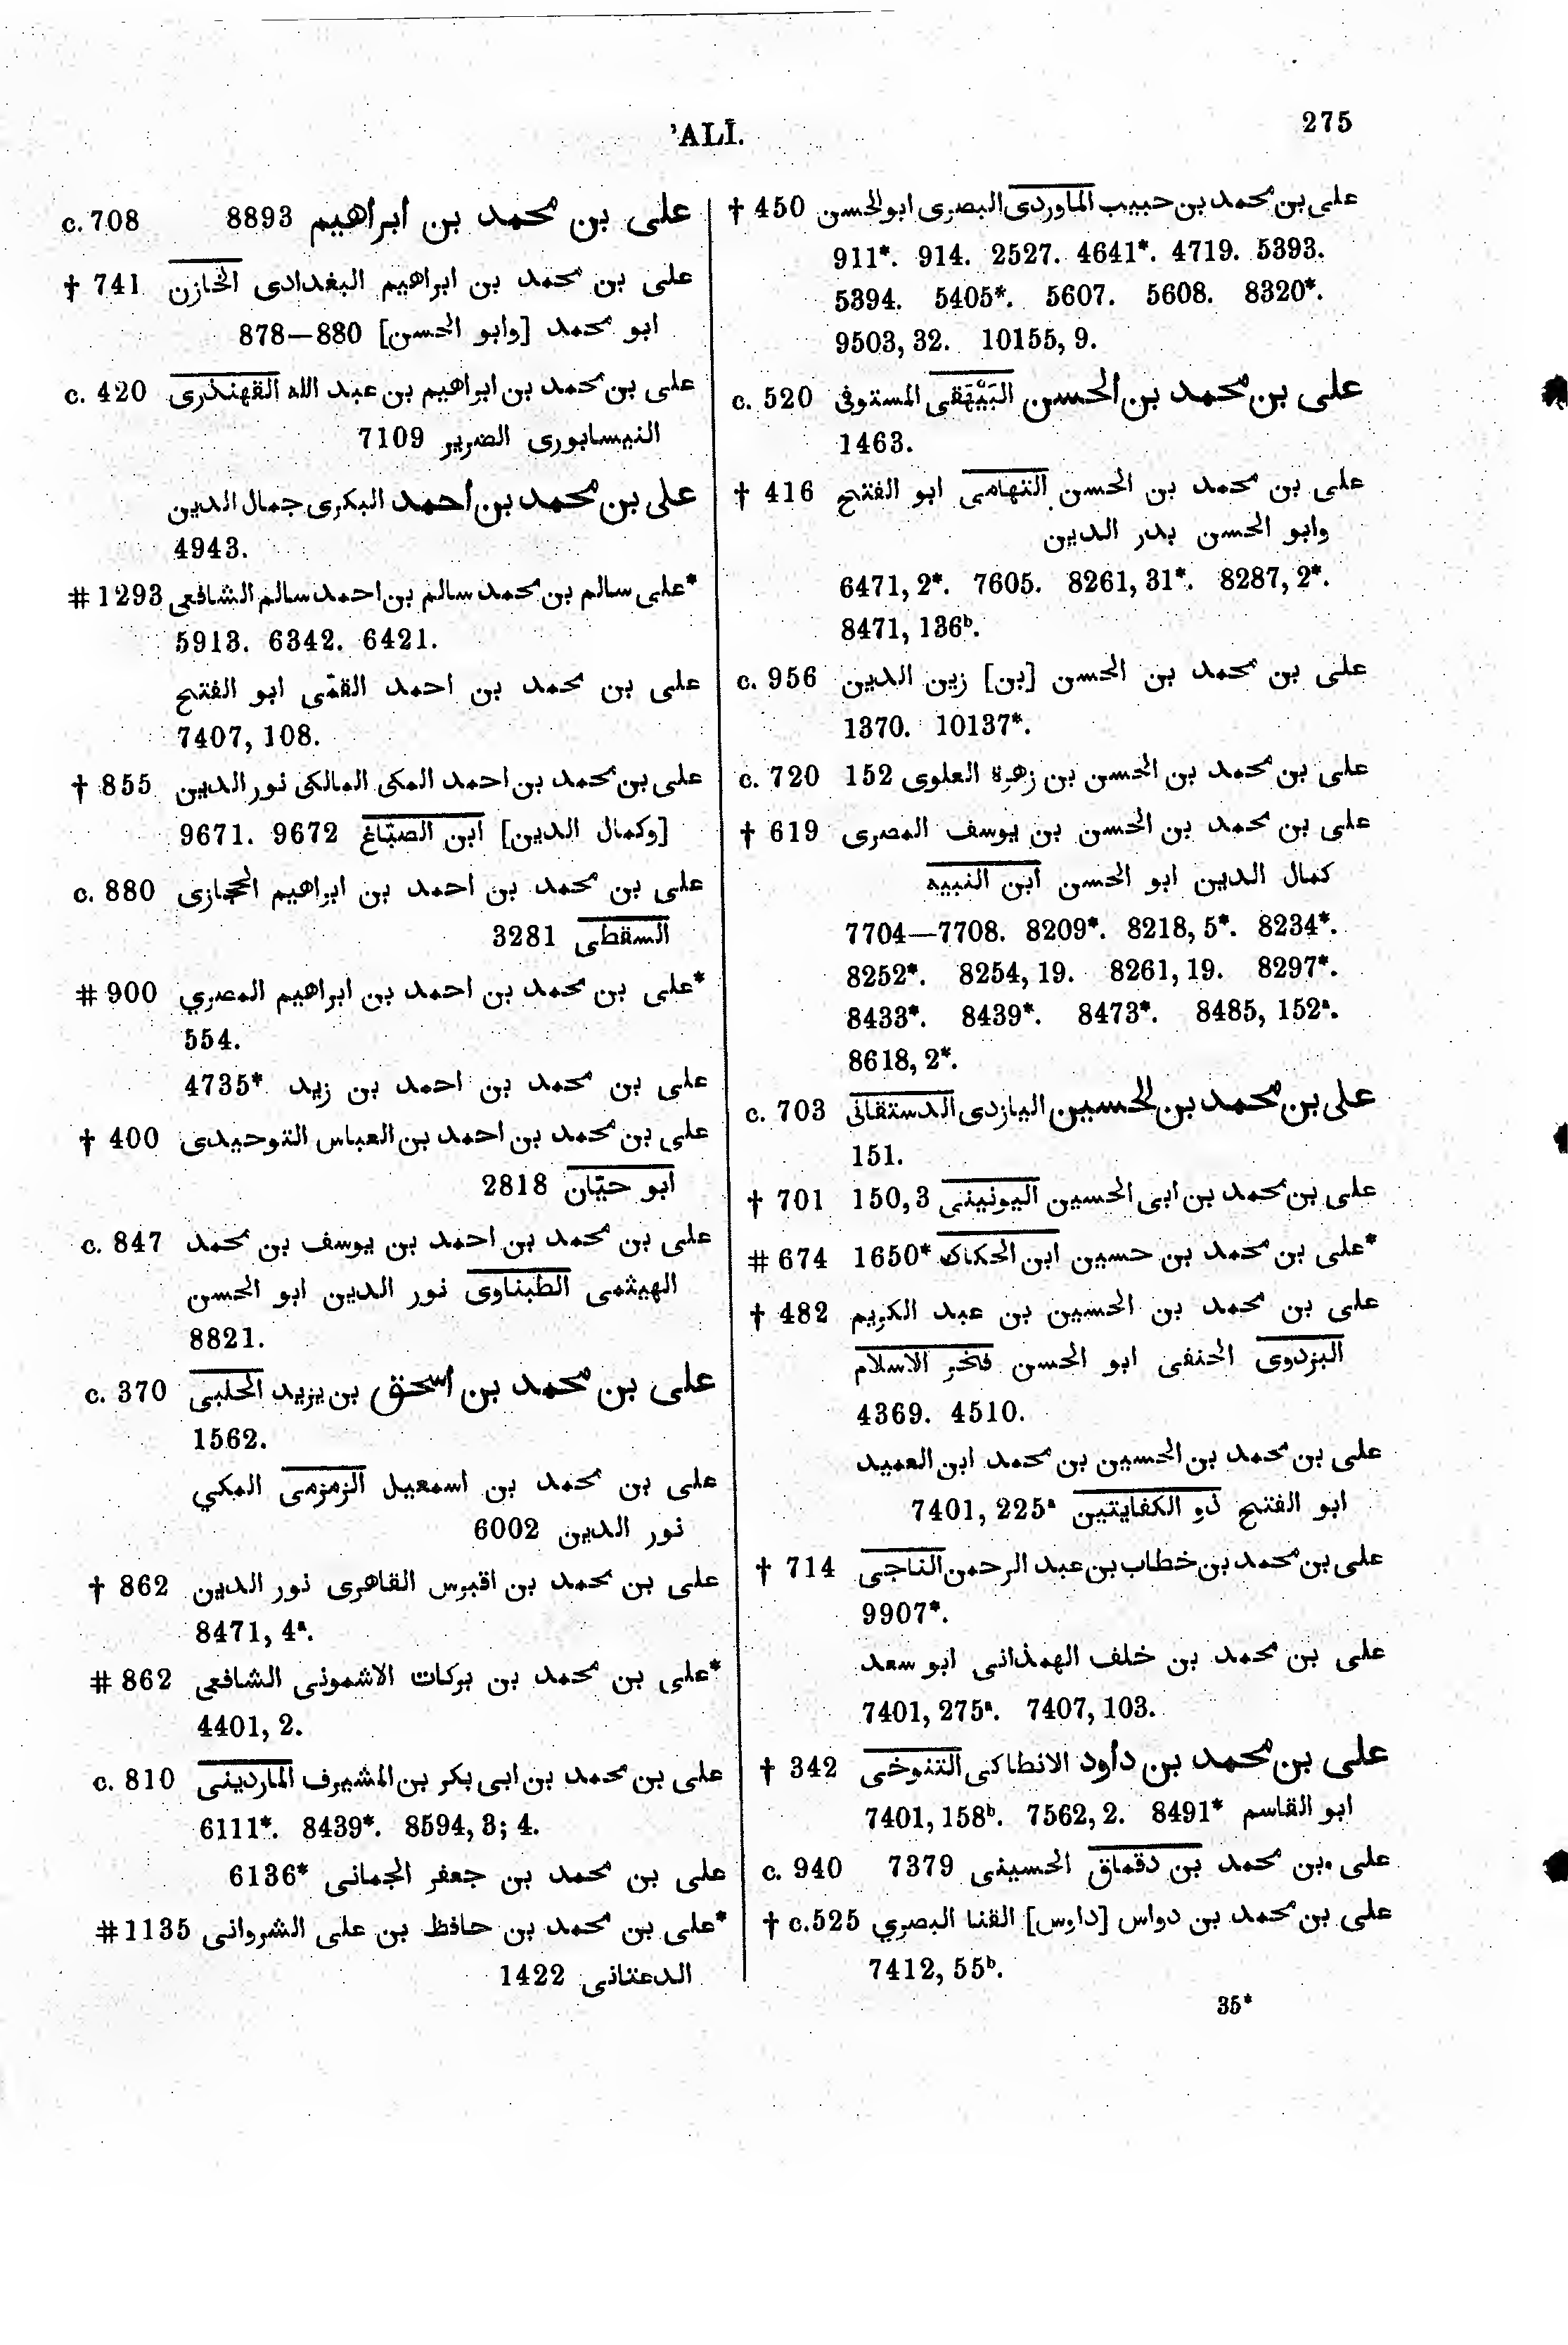 ’ALĪ.
275
c. 708 علی بن محمد بن ابراهيم 8893
† 741 علی بن محمد بن ابراهيم البغدادى الخازن
ابو محمد [وابو الحسن] 880—878
c. 420 علی بن محمد بن ابراهيم بن عبد الله القهندزى
النيسابورى الضرير 7109
علی بن محمد بن احمد البكرى جمال الدين
4943.
# 1293 *علی سالم بن محمد سالم بن احمد سالم الشافعى
5913. 6342. 6421.
علی بن محمد بن احمد القمّى ابو الفتح
7407, 108.
† 855 علی بن محمد بن احمد المكى المالكى نور الدين
[وكمال الدين] ابن الصبّاغ 9672 .9671
c. 880 علی بن محمد بن احمد بن ابراهيم الحجازى
السقطى 3281
# 900 *علی بن محمد بن احمد بن ابراهيم المصري
554.
علی بن محمد بن احمد بن زيد *4735
† 400 علی بن محمد بن احمد بن العباس التوحيدى
ابو حيّان 2818
c. 847 علی بن محمد بن احمد بن يوسف بن محمد
الهيثمى الطبناوى نور الدين ابو الحسن
8821.
c. 370 علی بن محمد بن اسحق بن يزيد الحلبى
1562.
علی بن محمد بن اسمعيل الزمزمى المكي
نور الدين 6002
† 862 علی بن محمد بن اقبرس القاهرى نور الدين
8471, 4ª.
# 862 *علی بن محمد بن بركات الاشمونى الشافعي
4401, 2.
c. 810 علی بن محمد بن ابى بكر بن المشيرف الماردينى
6111*. 8439*. 8594, 3; 4.
علی بن محمد بن جعفر الجمانى *6136
# 1135 *علی بن محمد بن حافظ بن على الشروانى
الدعتانى 1422
† 450 علی بن محمد بن حبيب الماوردى البصرى ابو الحسن
911*. 914. 2527. 4641*. 4719. 5393.
5394. 5405*. 5607. 5608. 8320*.
9503, 32. 10155, 9.
c. 520 علی بن محمد بن الحسن البَيْهَقى المستوفى
1463.
† 416 علی بن محمد بن الحسن التهامى ابو الفتح
وابو الحسن بدر الدين
6471, 2*. 7605. 8261, 31*. 8287, 2*.
8471, 136ᵇ.
c. 956 علی بن محمد بن الحسن [بن] زين الدين
1370. 10137*.
c. 720 علی بن محمد بن الحسن بن زهرة العلوى 152
† 619 علی بن محمد بن الحسن بن يوسف المصرى
كمال الدين ابو الحسن ابن النبيه
7704—7708. 8209*. 8218, 5*. 8234*.
8252*. 8254, 19. 8261, 19. 8297*.
8433*. 8439*. 8473*. 8485, 152ª.
8618, 2*.
c. 703 علی بن محمد بن الحسين اليازدى الدستقانى
151.
† 701 علی بن محمد بن ابى الحسين اليونينى 150,3
# 674 *علی بن محمد بن حسين ابن الحكاك *1650
† 482 علی بن محمد بن الحسين بن عبد الكريم
البزدوى الحنفى ابو الحسن فخر الاسلام
4369. 4510.
علی بن محمد بن الحسين بن محمد ابن العميد
ابو الفتح ذو الكفايتين 7401, 225ª
† 714 علی بن محمد بن خطاب بن عبد الرحمن الناجى
9907*.
علی بن محمد بن خلف الهمذانى ابو سعد
7401, 275ª. 7407, 103.
† 342 علی بن محمد بن داود الانطاكى التنوخى
ابو القاسم 7401, 158ᵇ. 7562, 2. 8491*
c. 940 علی بن محمد بن دقماق الحسينى 7379
† c.525 علی بن محمد بن دواس [داوس] القنا البصري
7412, 55ᵇ.
35*